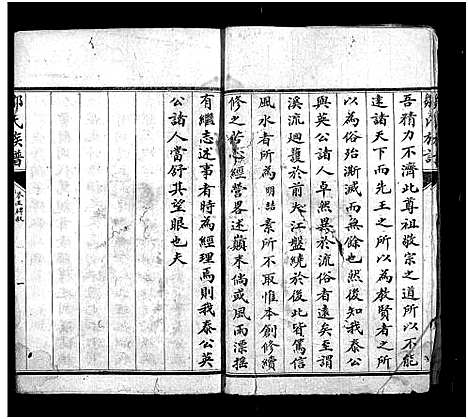 鄒氏族譜
吾精力不濟此尊祖敬宗之道所以不能
達諸天下而先王之所以為教賢者之所
以為俗殆漸滅而無餘也然後知我泰公
與英公諸人卓然異於流俗者遠矣至謂
溪流迴護於前大江盤繞於後此皆篤信
風水者所為明喆素所不取惟本創修續
修之苦心經營畧述巔末倘或風雨漂搖
有繼志述事者時為經理焉則我泰公英
公諸人當舒其望眼也夫
鄒氏族譜
一